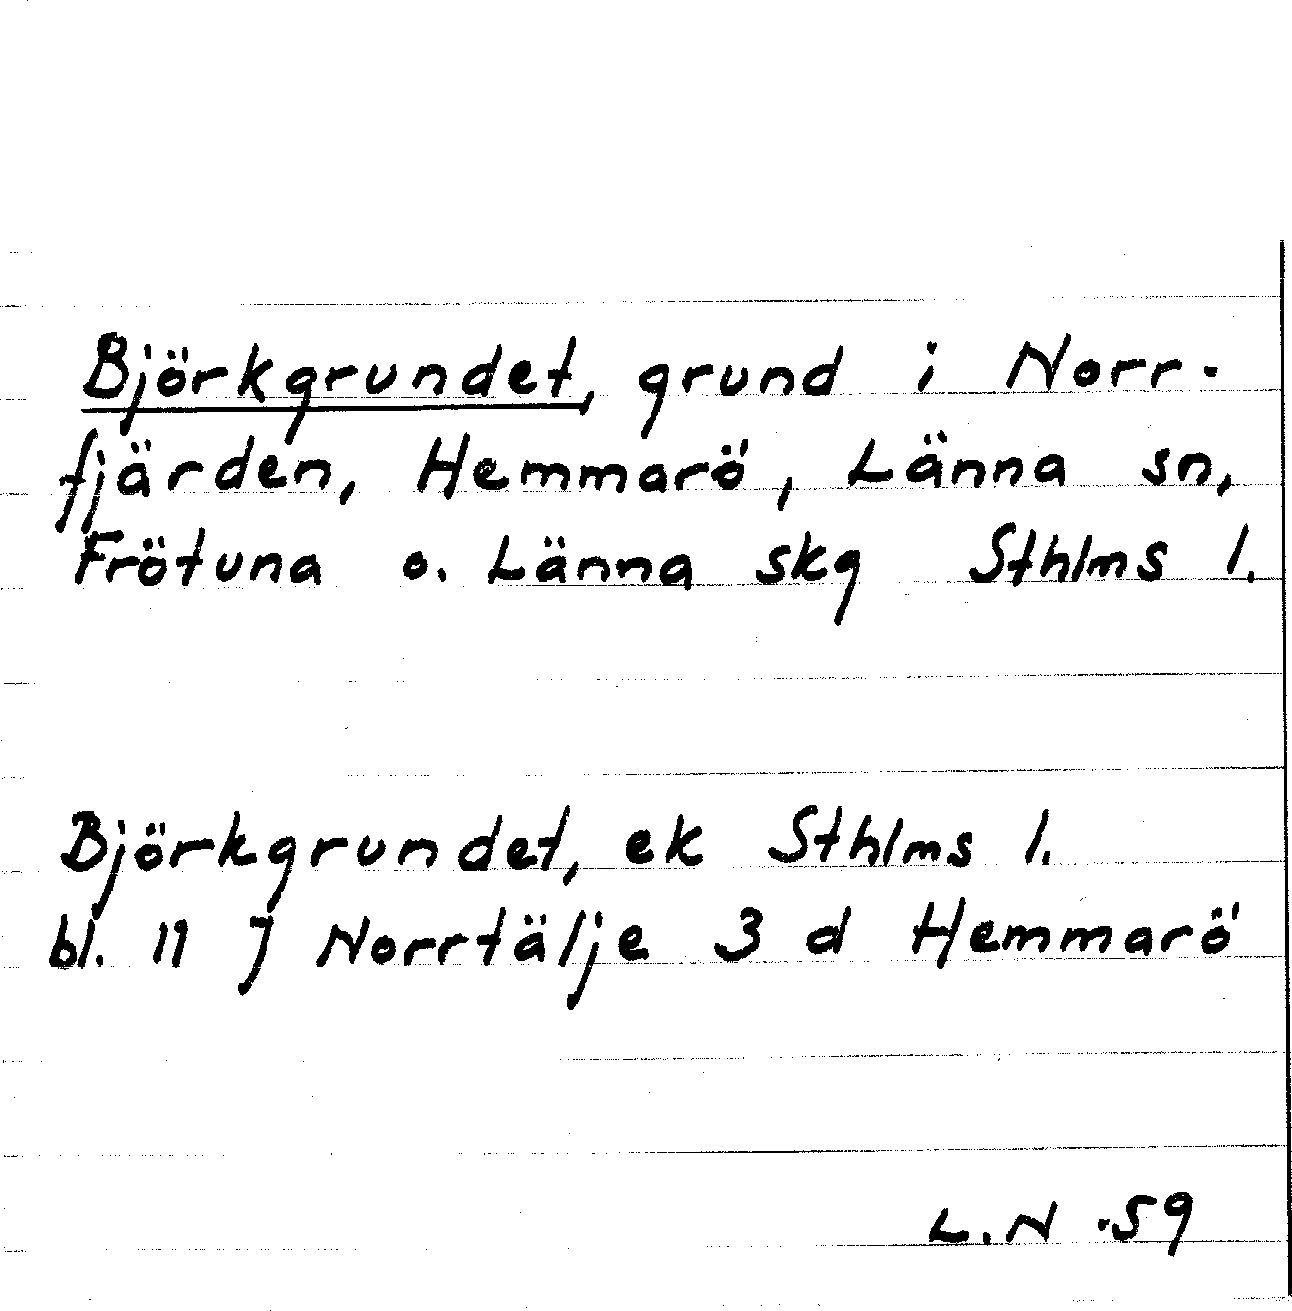 Björkgrundet, grund i Norr-
fjärden, Hemmarö, Länna sn,
Frötuna o. Länna skg Sthlms l.
Björkgrundet, ek Sthlms l.
bl. 11 J Norrtälje 3 d Hemmarö
L.N. 59